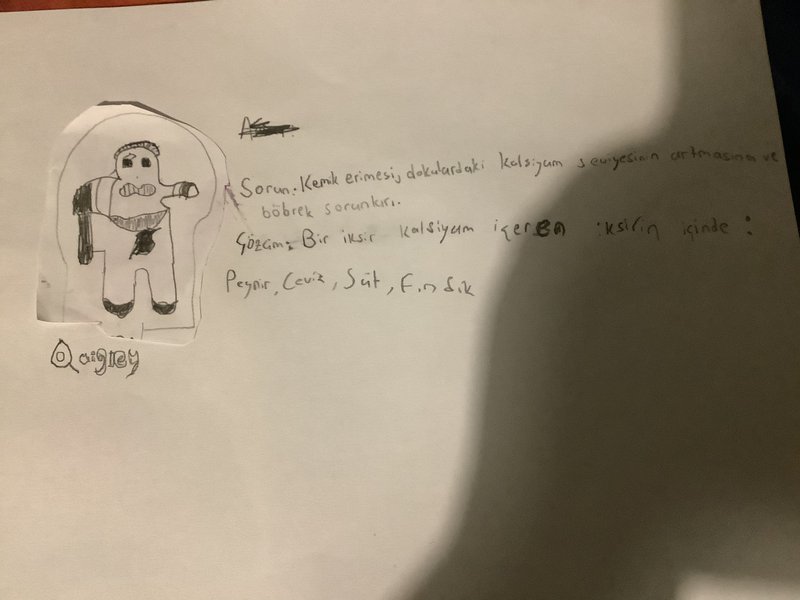 Sorun: Kemik erimesi, dokulardaki kalsiyum seviyesinin artmasına ve
böbrek sorunkırı.
Çözüm: Bir iksir kalsiyum içeren iksirin içinde :
Peynir, Ceviz, Süt, Fındık
Qaigrey